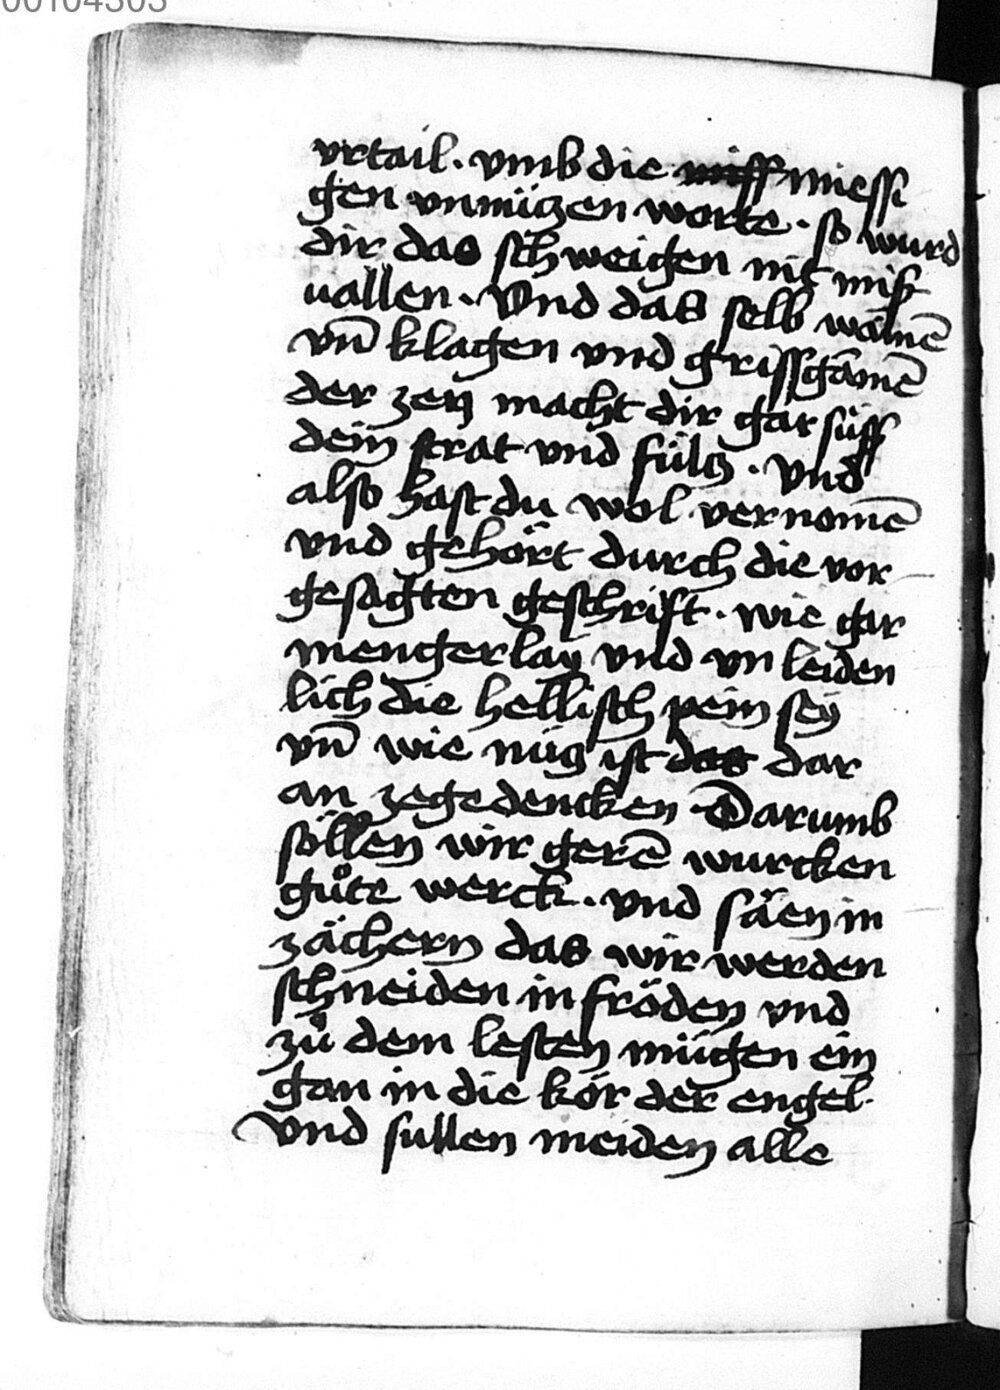 00104303
vrtail. vmb die miessi
gen vnnützen worte. so wurd
dir das schweigen nit miß
uallen. Vnd das selb wainē
vn̄ klagen vnd grissgramē
der zen macht dir gar süss
dein strat vnd fültz. vnd
also hast du wol vernomē
vnd gehört durch die vor
gesagten geschrift. wie gar
mengerlay vnd vnleiden
lich die hellisch pein sey
vn̄ wie nütz ist das dar
an zegedencken Darumb
söllen wir gerē wurcken
gůte werck. vnd säen in
zächern das wir werden
schneiden in fröden vnd
zů dem lesten mügen ein
gan in die kör der engel.
Vnd sullen meiden alle